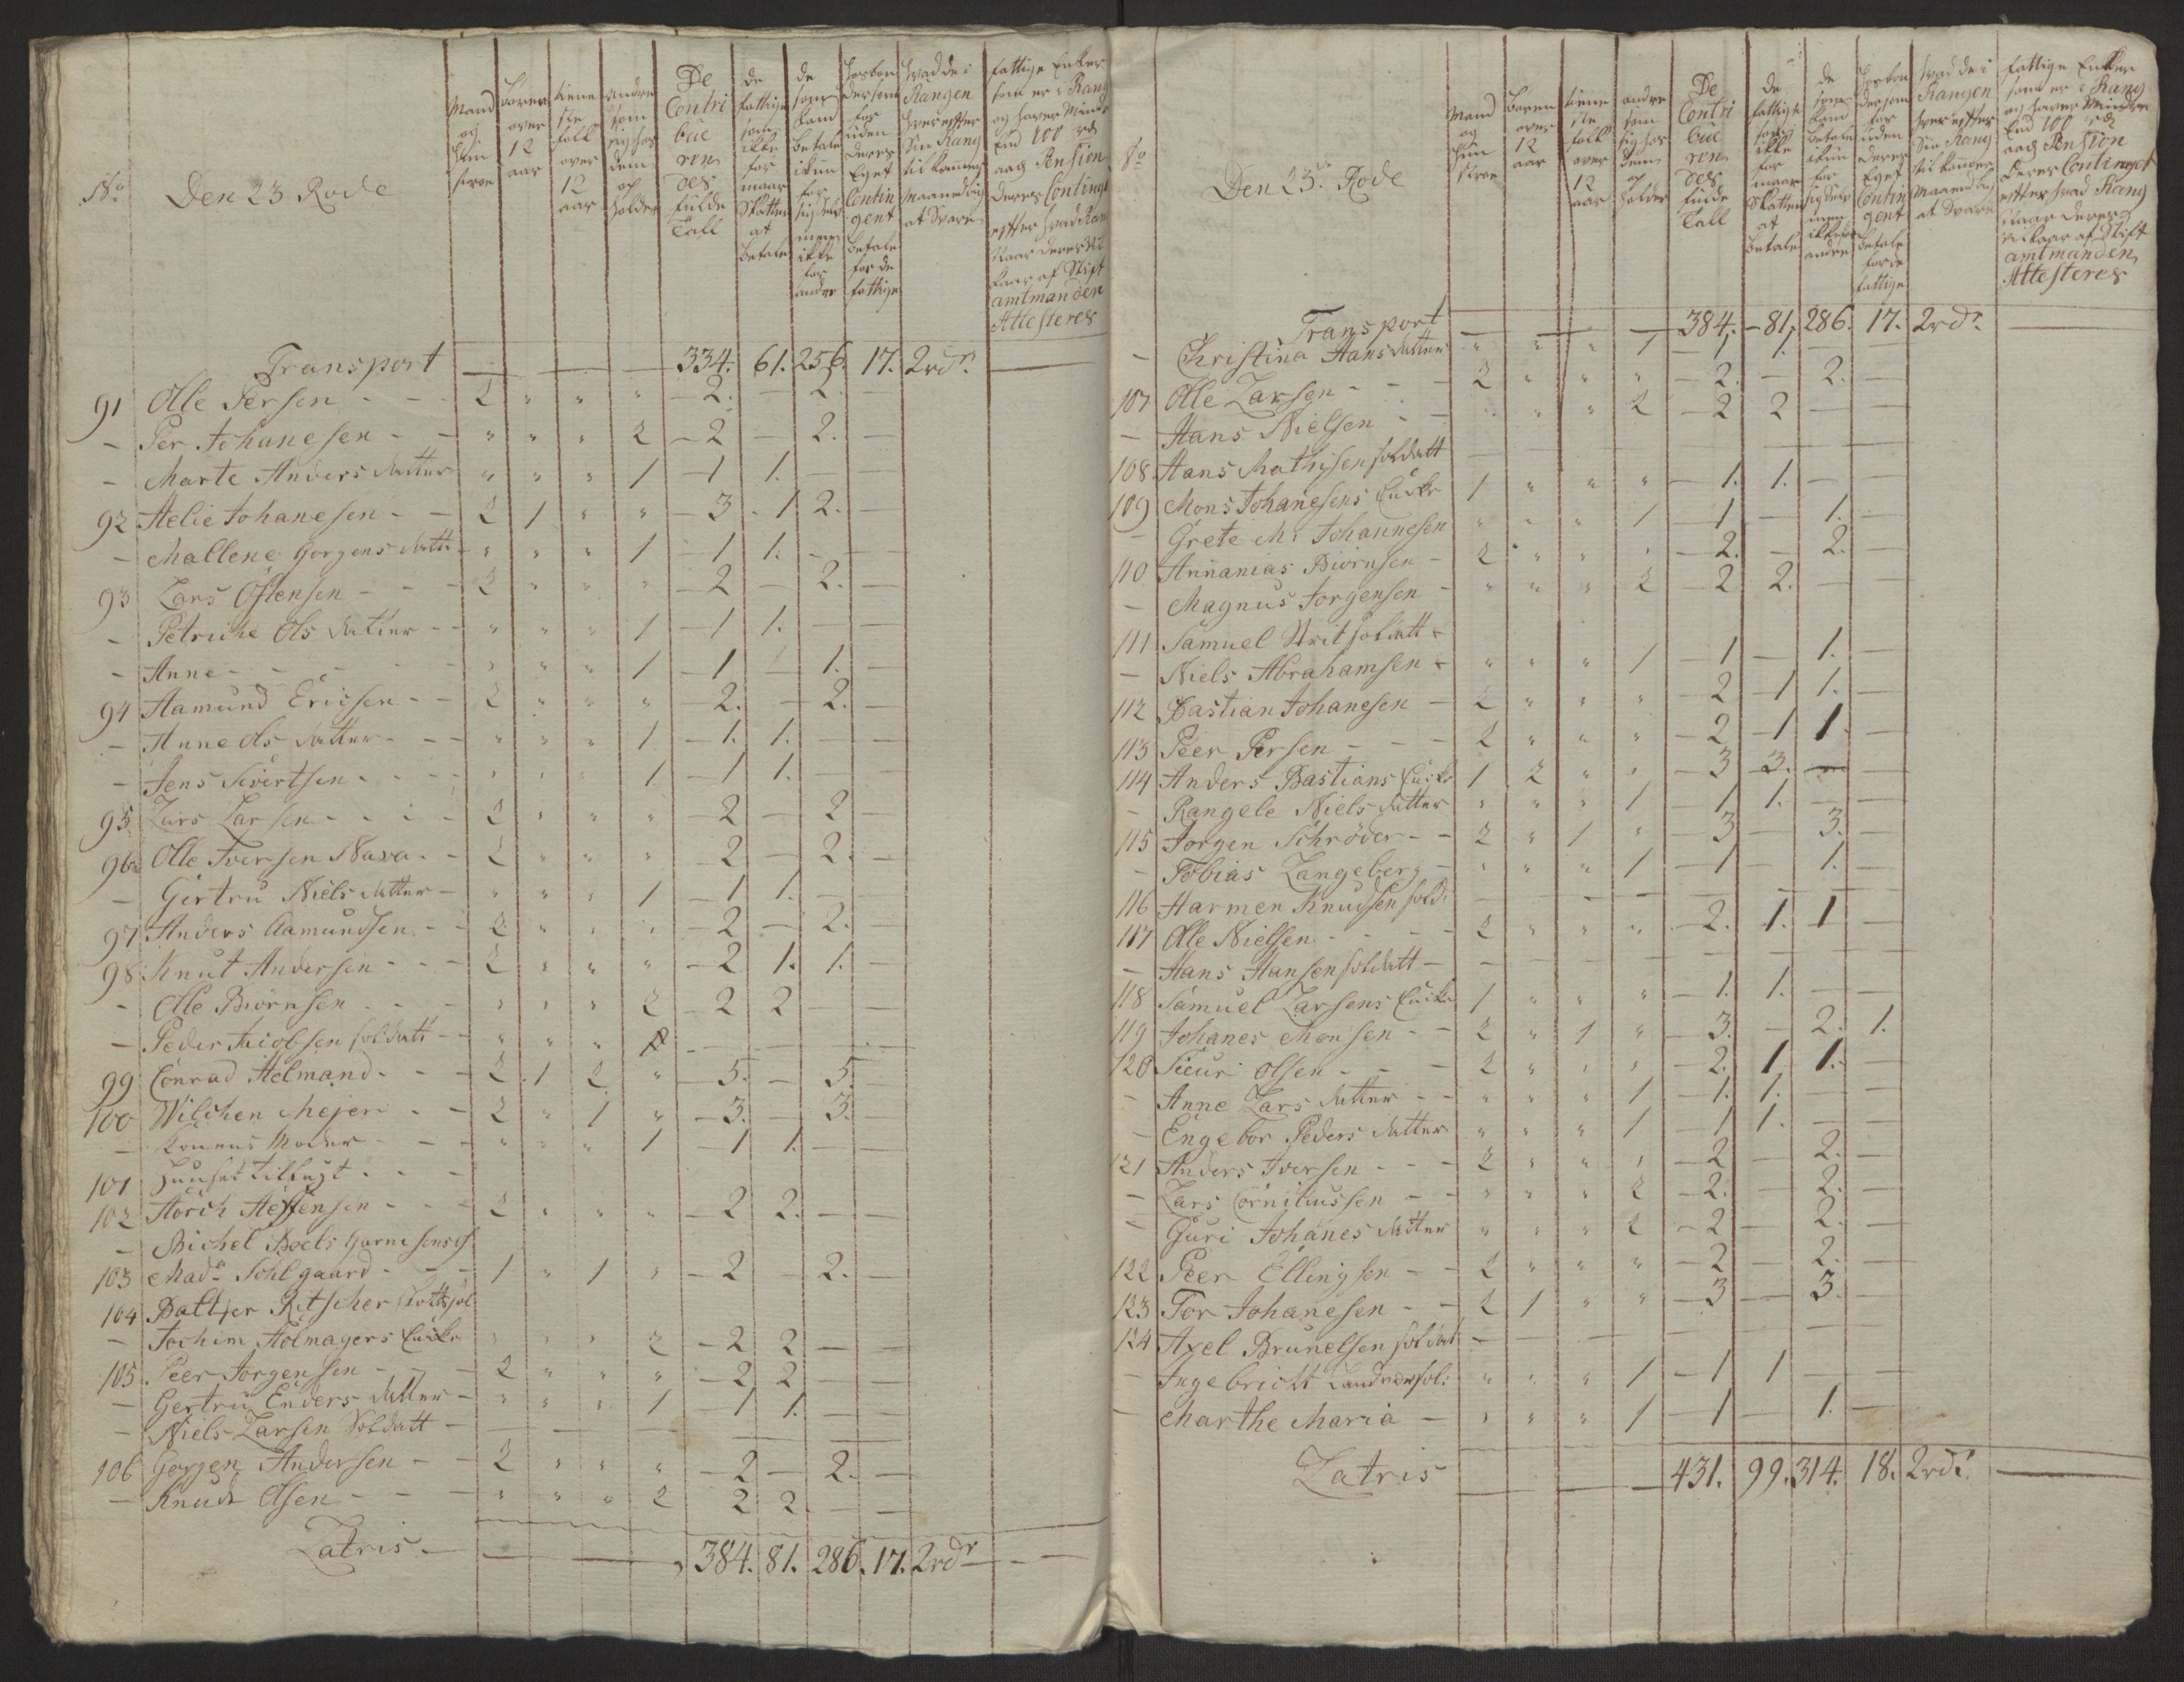 No Den 23 Rode
Mand og Hustroe
Børen over 12 aar
tienestefolk over 12 aar
andre som sig hos dem opholder
De Contribuerendes fulde Tall
de fattige som ikke formaar Skatten at betale
de som kand betale ikun for sig selv men ikke for andre
Hosbonder som for uden deres Eget Contingent betale for de fattige
hvad de i Rangen hver efter Sin Rang til kommer maanedlig at Svare
fattige Enker som er i Rang og haver Mindre End 100 rd aarl Pension Deres Contingent efter hvad Rang Naar deres Vilkaar af Stiftamtmanden Attesteres
Transport — — — — 334. 61. 256. 17. 2rdr. —
91 Olle Persen - - 2 " " " 2. — 2. —
— Per Johanesen - - " " " 2 — 2 — 2. —
— Marte Anders datter " " " 1 — 1 1. — —
92 Helie Johanesen - - 2 1 " " — 3 . 1 2. —
— Mallene Gorgens datt " " " 1 — 1 1. — —
93 Lars Ostensen - - 2 " " " — 2 — 2. —
— Petriche Ols datter - " " " 1 — 1 1. — —
— Anne - - - " " " 1 — 1 — 1. —
94 Aamund Ericsen - - 2 " " " — 2. — 2. —
— Anne Ols datter - - " " " 1 — 1. 1. — —
— Jens Sivertsen - - " " " 1 — 1 1. — —
95 Lars Larsen - - 2 " " " — 2 — 2 —
96 Olle Iversen Nava - 2 " " " — 2 — 2. —
— Gertru Niels datter - " " " 1 — 1 1. — —
97 Anders Aamundsen - 2 " " " — 2 — 2. —
98 Knut Andersen - - 2 " " " — 2 1. 1. —
— Olle Biørnsen - - " " " 2 — 2 2 — —
— Peder Jacobsen soldatt - " " " — — — —
99 Conrad Helmand - - 2 1 2 " — 5. — 5. —
100 Wilchen Mejer - - 2 " 1 " — 3. — 3. —
— Konens Moder - - " " " 1 — 1 1. — —
101 Huuset tillugt - -
102 Hørich Steffensen - - 2 " " " — 2 2. — —
— Michel Boets
103 Made Sohlgaard - - 1 " 1 " — 2 — 2. —
104 Baltzer Ritscher
— Jochim Holmayers Encke " " " 2 — 2 2 — —
105 Peer Jorgensen - - 2 " " " — 2 2 — —
— Gertru Enders datter - " " " 1 — 1 1. — —
— Niels Larsen Soldatt — — — — — — — —
106 Gorgen Andersen - - 2 " " " — 2 — 2. —
— Knudt Olsen - - " " " 2 2 2. — —
Latris — — — 384. 81. 286. 17. 2rdr — —
No Den 23de Rode
Mand og Hustroe
Børen over 12 aar
tieneste folk over 12 aar
andre som sig hos dem opholder
De Contribuerendes fulde Tall
De fattige som ikke formaar Skatten at betale
de som kand betale ikun for sig selv men ikke for andre
Hosbonder som for uden deres Eget Contingent betale for de fattige
hvad de i Rangen hver efter Sin Rang til kommer Maanedlig at Svare
fattige Enker som er i Rang og haver Mindre End 100 rd aarl Pension Deres Contingent efter hvad Rang Naar deres Vilkaar af Stiftamtmanden Attesteres
Transport — — — 384. 81. 286. 17. 2rdr. —
— Christina Hans datter " " " 1 — 1 1. — —
107 Olle Larsen - - 2 " " " — 2. — 2. —
— Hans Nielsen - - " " " 2 — 2 2 — —
108 Hans Mathisen soldatt — — — — — — — —
109 Mons Johanesens Encke 1 " " " — 1. 1. — —
— Grete M: Johannesen " " " 1 — 1 — 1. —
110 Annanias Biørnsen - 2 " " " — 2. — 2. —
— Magnus Jorgensen - " " " 2 — 2 2. — —
111 Samuel Strit soldatt
— Niels Abrahamsen - " " " 1 — 1 — 1. —
112 Bastian Johanesen - 2 " " " — 2 — 1 1. —
113 Peer Persen - - - 2 " " " — 2 — 1 1. —
114 Anders Bastians Encke 1 2 " " — 3 — 3. — —
— Rangele Niels datter " " " 1 — 1 1. — —
115 Jorgen Schrøder - - 2 " 1 " — 3 — 3. —
— Tobias Langeberg - " " " 1 — 1 — 1. —
116 Harmen Knudsen sold: — — — — — — — —
117 Olle Nielsen - - - 2 " " " — 2. 1. 1 —
— Hans Hansen soldatt — — — — — — — — —
118 Samuel Larsens Encke 1 " " " — 1. 1. — —
119 Johanes Monsen - - 2 " 1 " — 3. — 2. 1.
120 Sicuri Olsen - - - 2 " " " — 2. 1 1. —
— Anne Lars datter - - " " " 1 — 1. 1. — —
— Engebor Peders datter " " " 1 — 1 1. — —
121 Anders Iversen - - - 2 " " " — 2 — 2. —
— Lars Cornitiussen - - " " " 2 — 2. — 2. —
— Guri Johanes datter " " " 2 — 2 — 2. —
122 Peer Ellingsen - - 2 " " " — 2 — 2. —
123 Tor Johanesen - - 2 1 " " — 3 — 3. —
124 Axel Brunelsen soldat — — — — — — — —
— Ingebricht Landværsol: " " " 1 — 1 1 — —
— Marthe Maria - " " " 1 — 1 — 1. —
Latris — — — 431. 99. 314. 18. 2rdr. —